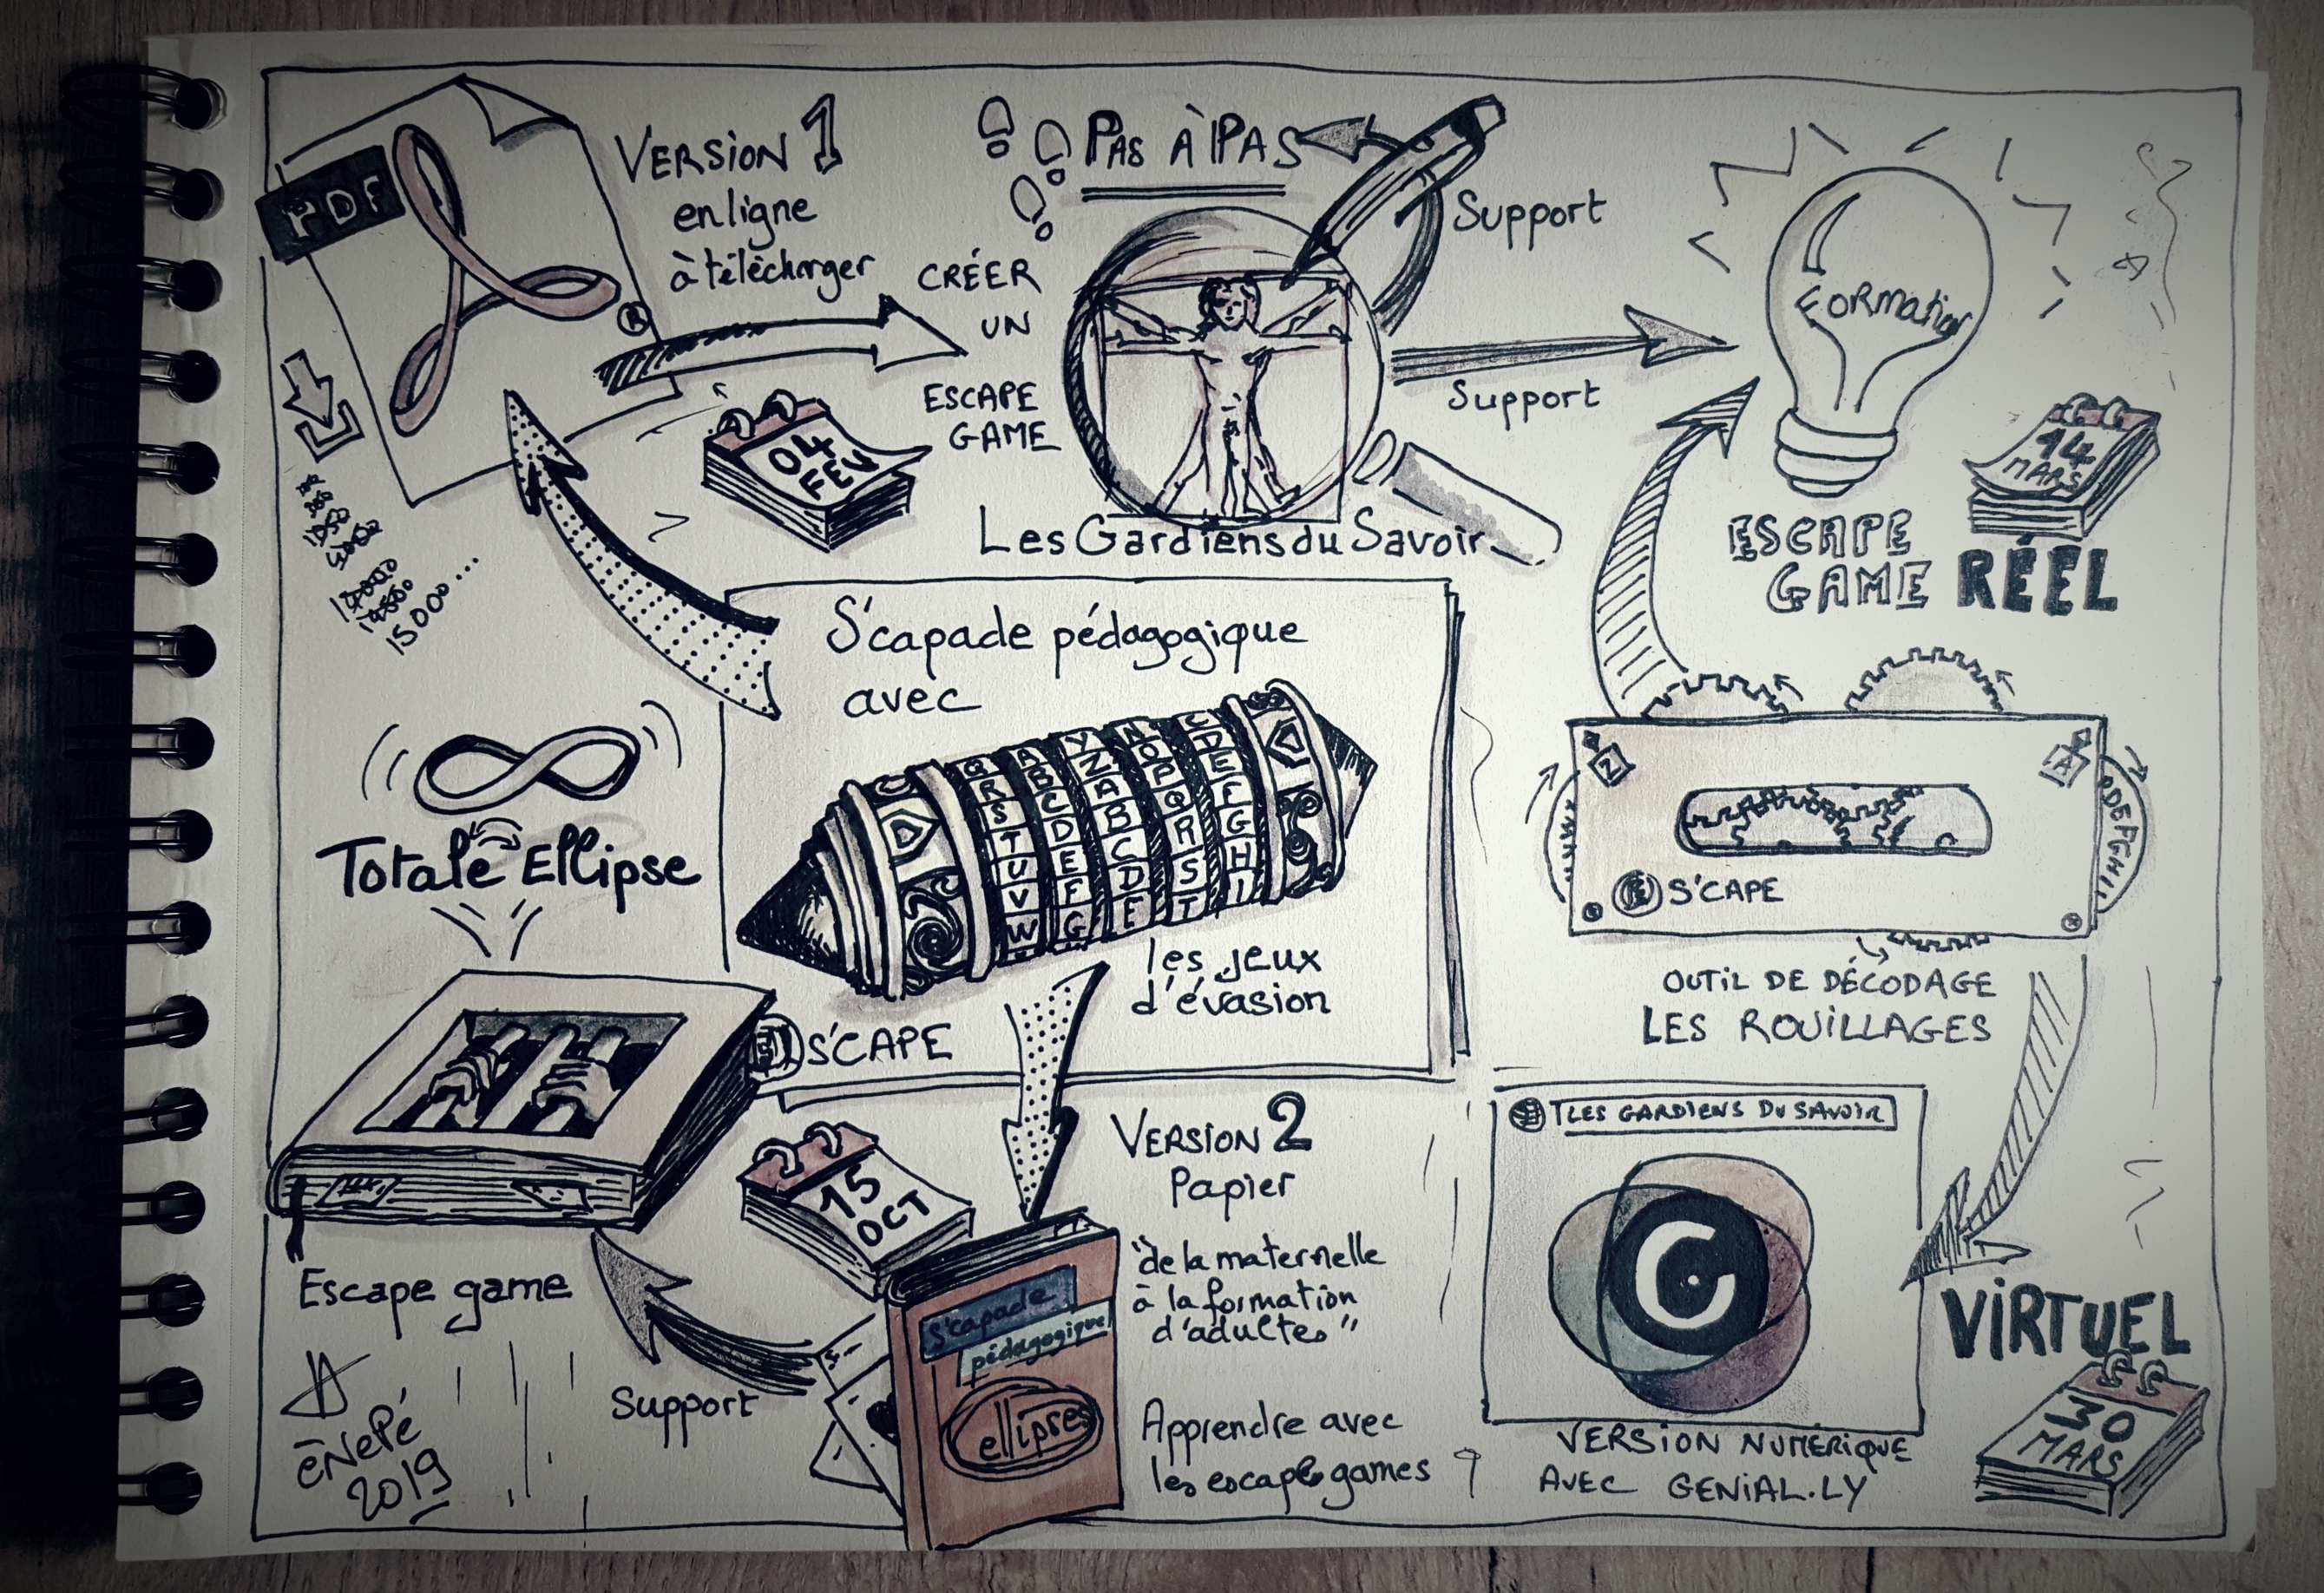 PDF
VERSION 1
en ligne
à télécharger
PAS À PAS
CRÉER
UN
ESCAPE
GAME
Support
Support
Formation
04
FEV
14
MARS
Les Gardiens du Savoir
ESCAPE
GAME RÉEL
10000
15000...
S'capade pédagogique
avec
Q R S T U V W
A B C D E F G
Y Z A B C D E
N O P Q R S T
C D E F G H I
les jeux
d'évasion
S'CAPE
Totale Ellipse
Z
A
DEFGHI
S'CAPE
OUTIL DE DÉCODAGE
LES ROUILLAGES
Escape game
15
OCT
VERSION 2
Papier
"de la maternelle
à la formation
d'adultes"
Apprendre avec
les escape games
Support
S'capade
pédagogique
ellipses
LES GARDIENS DU SAVOIR
VERSION NUMÉRIQUE
AVEC GENIAL.LY
VIRTUEL
30
MARS
ēNePé
2019